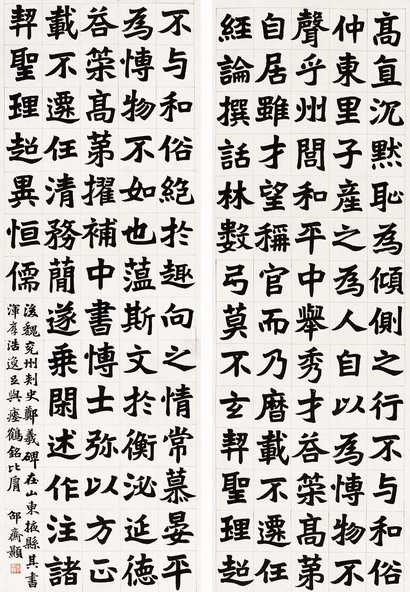 高直沉默恥為傾側之行不与和俗
仲東里子產之為人自以為愽物不
聲乎州閭和平中舉秀才荅策高苐
自居雖才望稱官而乃磿載不遷任
經論撰話林數弓莫不玄契聖理超
不与和俗絕於趣向之情常慕晏平
為愽物不如也蕰斯文於衡泌延德
荅策高苐擢補中書愽士弥以方正
載不遷任清務蕑遂乗閑述作注諸
契聖理超異恒儒
後魏兗州刺史鄭羲碑在山東掖縣其書
渾厚浩逸足與瘞鶴銘比肩